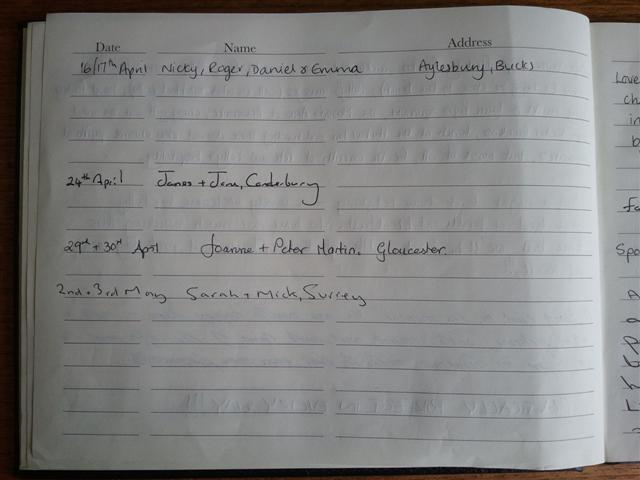 Date Name Address
16/17th April Nicky, Roger, Daniel & Emma Aylesbury, Bucks
24th April James + Jane, Canterbury
29th + 30th April Joanne + Peter Martin. Gloucester.
2nd + 3rd May Sarah + Mick, Surrey
Love
ch
in
b
fa
Spo